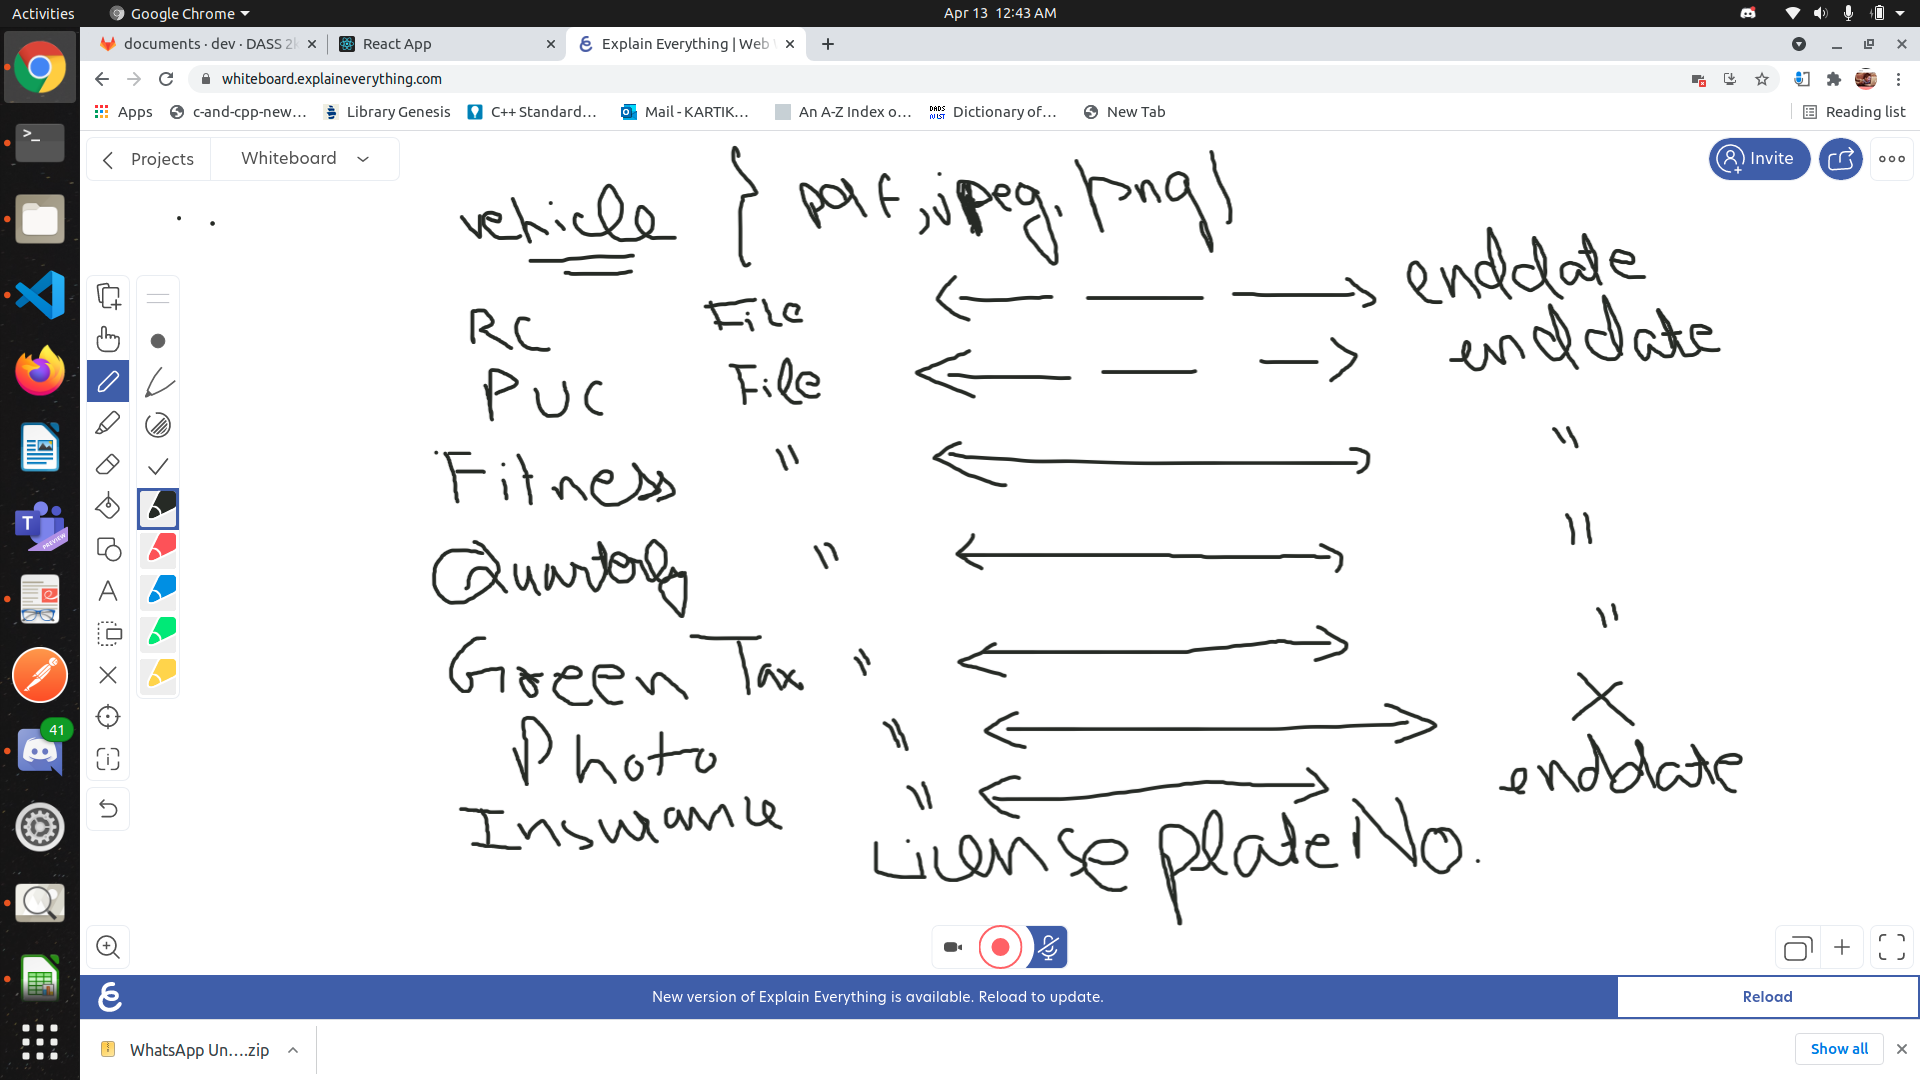 Activities Google Chrome Apr 13 12:43 AM
documents · dev · DASS 2k React App Explain Everything | Web
whiteboard.explaineverything.com
Apps c-and-cpp-new… Library Genesis C++ Standard… Mail - KARTIK… An A-Z Index o… Dictionary of… New Tab Reading list
Projects Whiteboard Invite
vehicle } pdf, jpeg, png
RC File enddate
PUC File enddate
Fitness " "
Quarterly " "
Green Tax " "
Photo " X
Insurance " enddate
License plate No.
41
New version of Explain Everything is available. Reload to update. Reload
WhatsApp Un….zip Show all